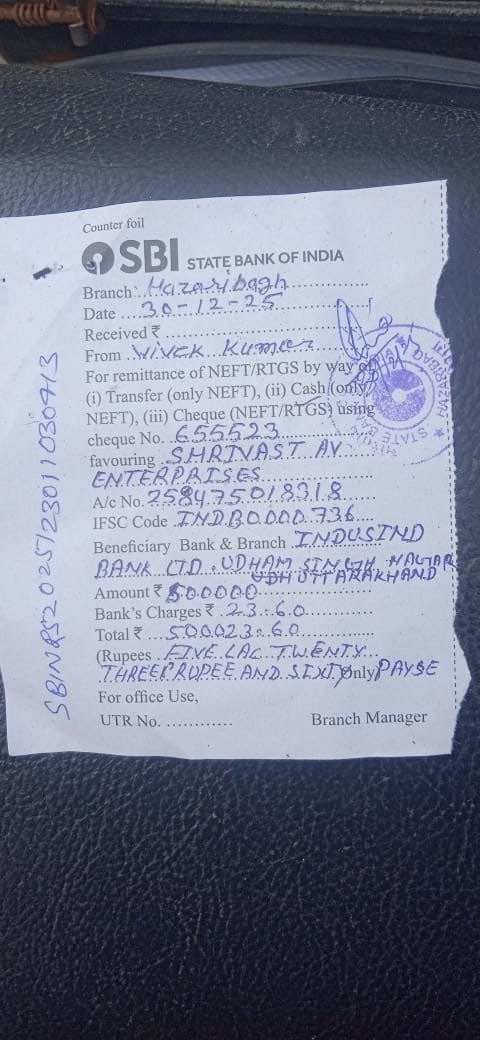 Counter foil
SBI STATE BANK OF INDIA
Branch Hazaribagh
Date 30-12-25
Received ₹
From Vivek Kumar
For remittance of NEFT/RTGS by way of
(i) Transfer (only NEFT), (ii) Cash (only
NEFT), (iii) Cheque (NEFT/RTGS) using
cheque No. 655523
favouring SHRIVASTAV
ENTERPRISES
A/c No. 258475018318
IFSC Code INDB0000736
Beneficiary Bank & Branch INDUSIND
BANK LTD. UDHAM SINGH NAGAR
UTTARAKHAND
Amount ₹ 500000
Bank's Charges ₹ 23.60
Total ₹ 500023.60
(Rupees FIVE LAC TWENTY
THREE RUPEE AND SIXTY Only PAYSE
For office Use,
UTR No. ............
Branch Manager
STATE BA